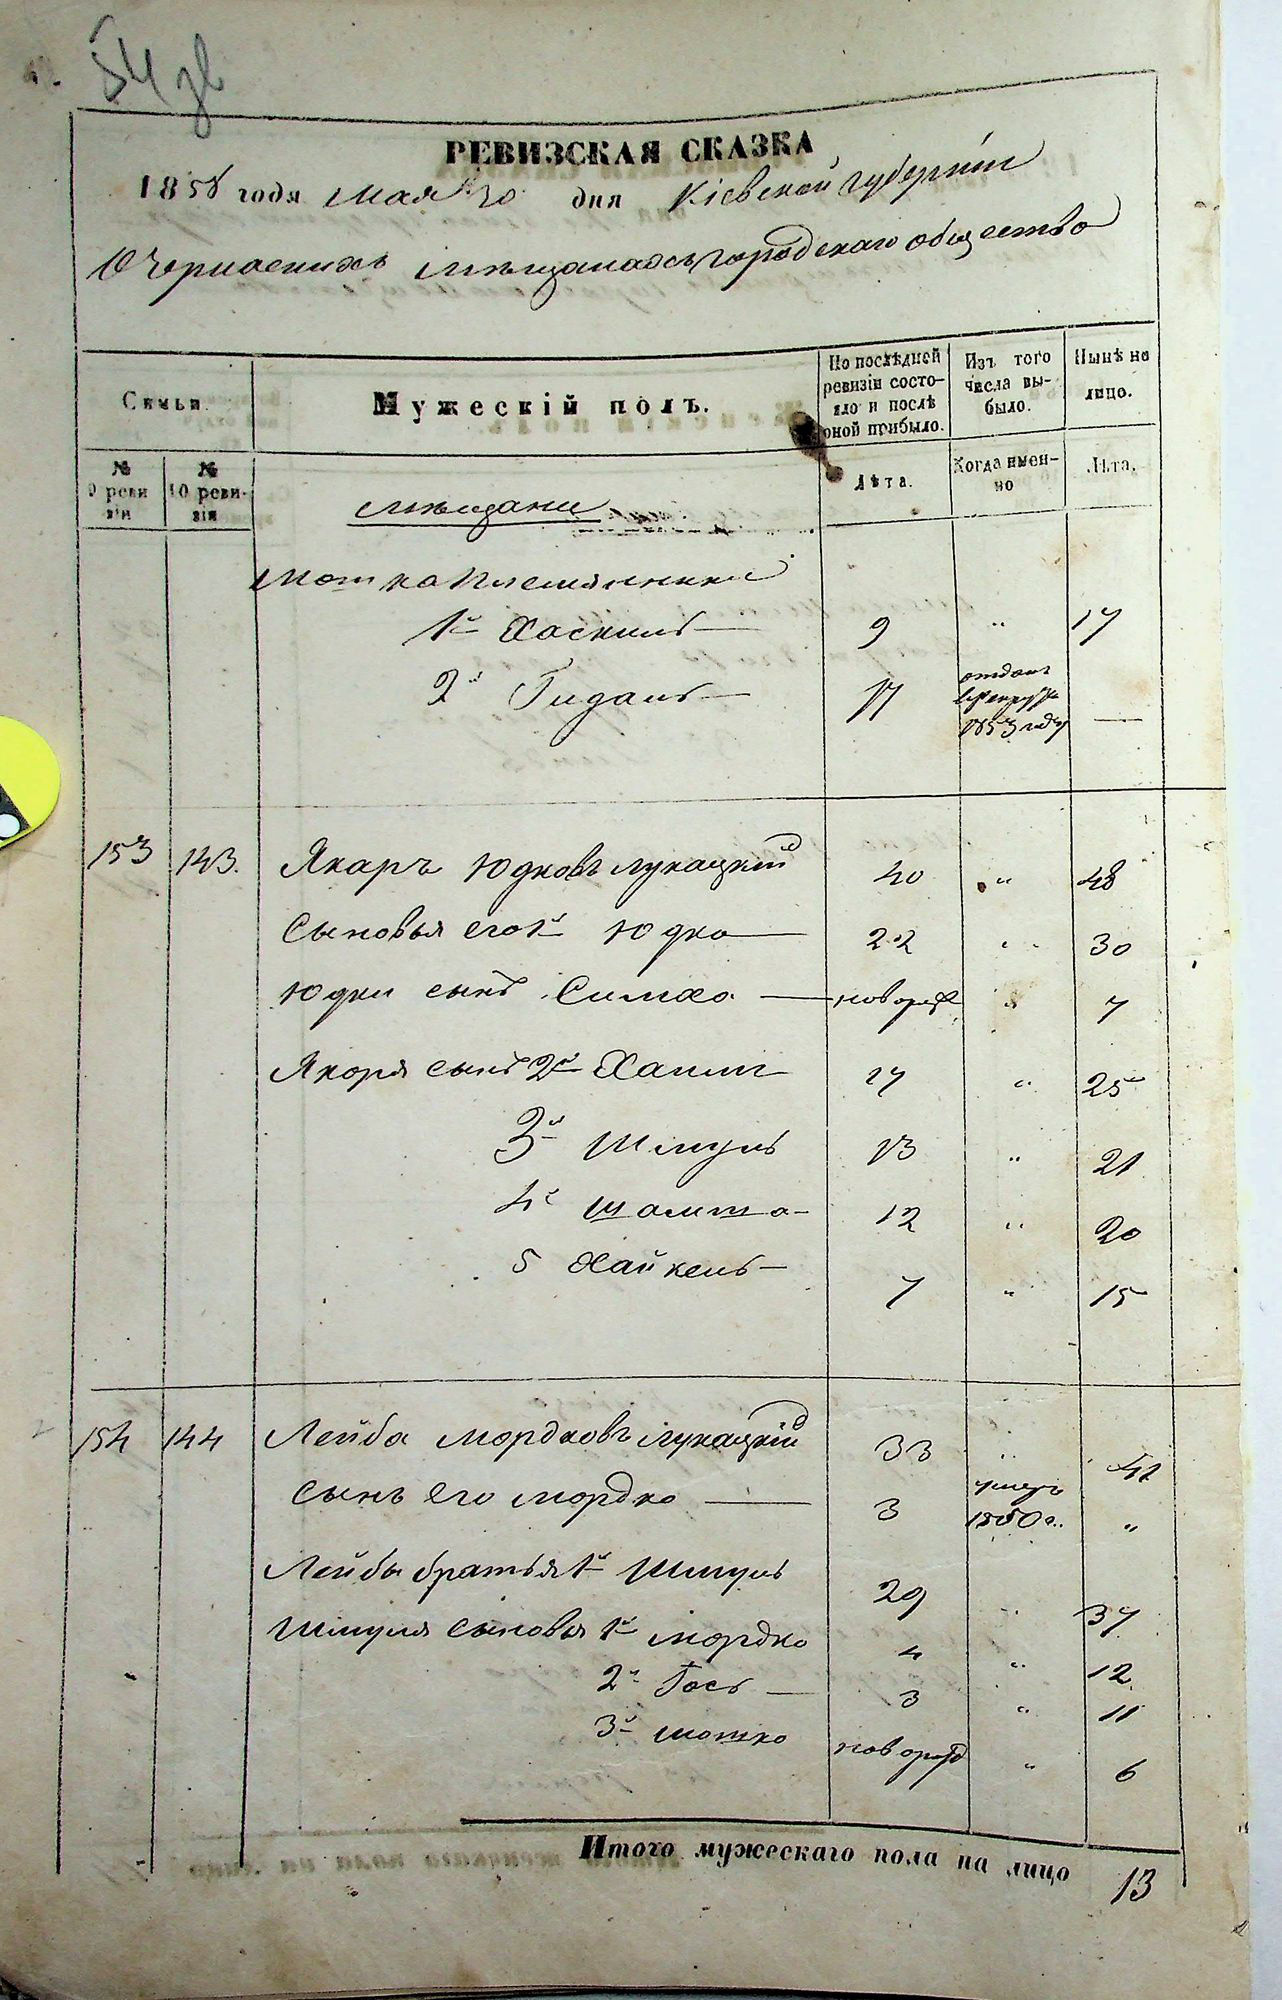 54 зв
РЕВИЗСКАЯ СКАЗКА
1858 года мая 30 дня Кіевской губерніи
О Черкаскихъ мѣщанахъ городскаго общество
Семьи.
Мужескій полъ.
По послѣдней ревизіи состо-
яло и послѣ оной прибыло.
Изъ того числа вы-
было.
Нынѣ на лицо.
№ 9 реви зіи
№ 10 реви- зіи
Лѣта.
Когда имен-
но
Лѣта.
мѣщане
Мошка племянники
1й Хаскиль 9 " 17
2й Гидаль 11 отданъ в рекруты 1853 году —
153 143. Якаръ Юдковъ Лукацкій 40 " 48
Сыновья его 1й Юдко 22 " 30
Юдки сынъ Симха — новорож " 7
Якоря сынъ 2й Хаим 17 " 25
3й Шмуль 13 " 21
4й Шамша 12 " 20
5 Хайкель 7 " 15
154 144 Лейба Мордковъ Лукацкій 33 " 41
Сынъ его Мордко — 3 умеръ 1850 г. "
Лейбы братья 1й Шмуль 29 " 37
Шмуля сыновья 1й Мордко 4 " 12
2й Гось — 3 " 11
3й Мошко новорожд " 6
Итого мужескаго пола на лицо 13